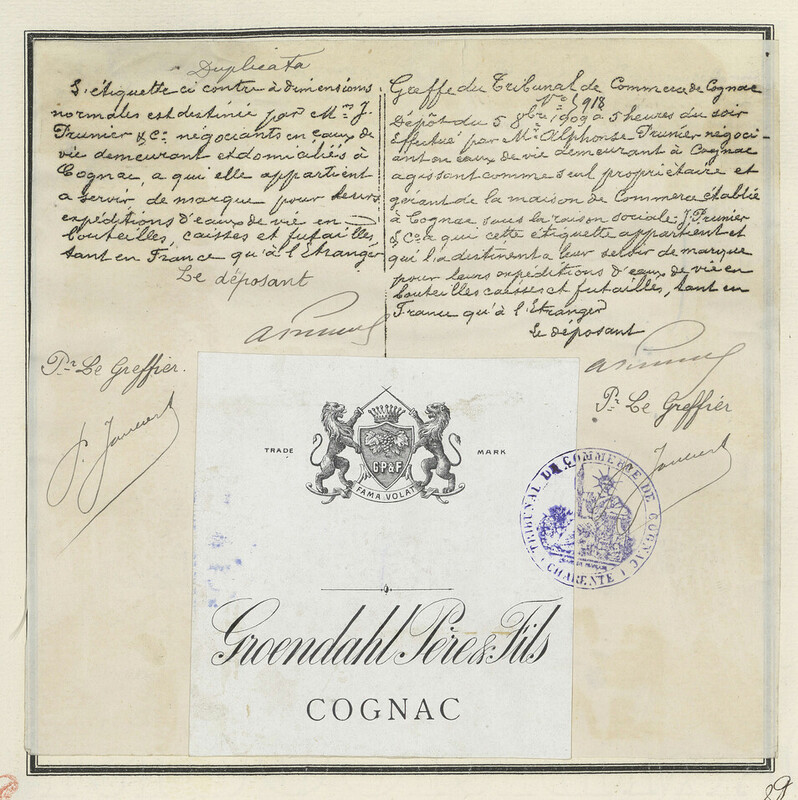 Duplicata
L'étiquette ci contre à dimensions
normales est destinée par Mrs J.
Prunier & Cie négociants en eaux de
vie demeurant et domiciliés à
Cognac, a qui elle appartient
a servir de marque pour leurs
expéditions d'eaux de vie en
bouteilles, caisses et futailles,
tant en France qu'à l'Etranger
Le déposant
Pr Le Greffier.
Greffe du Tribunal de Commerce de Cognac
No 5918
Dépôt du 5 8bre 1909 a 5 heures du soir
Effectué par Mr Alphonse Prunier négoci-
ant en eaux de vie demeurant à Cognac
agissant comme seul propriétaire et
gérant de la maison de Commerce établie
à Cognac sous la raison sociale J. Prunier
& Cie a qui cette étiquette appartient et
qui l'a destinent a leur servir de marque
pour leurs expéditions d'eaux de vie en
bouteilles caisses et futailles, tant en
France qu'à l'Etranger
Le déposant
Pr Le Greffier
TRADE MARK
GP&F
FAMA VOLAT
TRIBUNAL DE COMMERCE DE COGNAC
CHARENTE
Groendahl Père & Fils
COGNAC